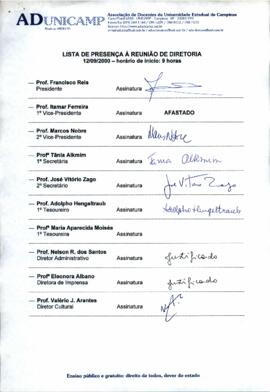 ADUNICAMP
Associação de Docentes da Universidade Estadual de Campinas
LISTA DE PRESENÇA À REUNIÃO DE DIRETORIA
12/09/2000 – horário de início: 9 horas
Prof. Francisco Reis
Presidente Assinatura
Prof. Itamar Ferreira
1º Vice-Presidente Assinatura AFASTADO
Prof. Marcos Nobre
2º Vice-Presidente Assinatura Marcos Nobre
Profª Tânia Alkmim
1ª Secretária Assinatura Tania Alkmim
Prof. José Vitório Zago
2º Secretário Assinatura José Vitório Zago
Prof. Adolpho Hengeltraub
1º Tesoureiro Assinatura Adolpho Hengeltraub
Profª Maria Aparecida Moisés
1ª Tesoureira Assinatura
Prof. Nelson R. dos Santos
Diretor Administrativo Assinatura justificado
Profª Eleonora Albano
Diretora de Imprensa Assinatura justificado
Prof. Valério J. Arantes
Diretor Cultural Assinatura
Ensino público e gratuito: direito de todos, dever do estado